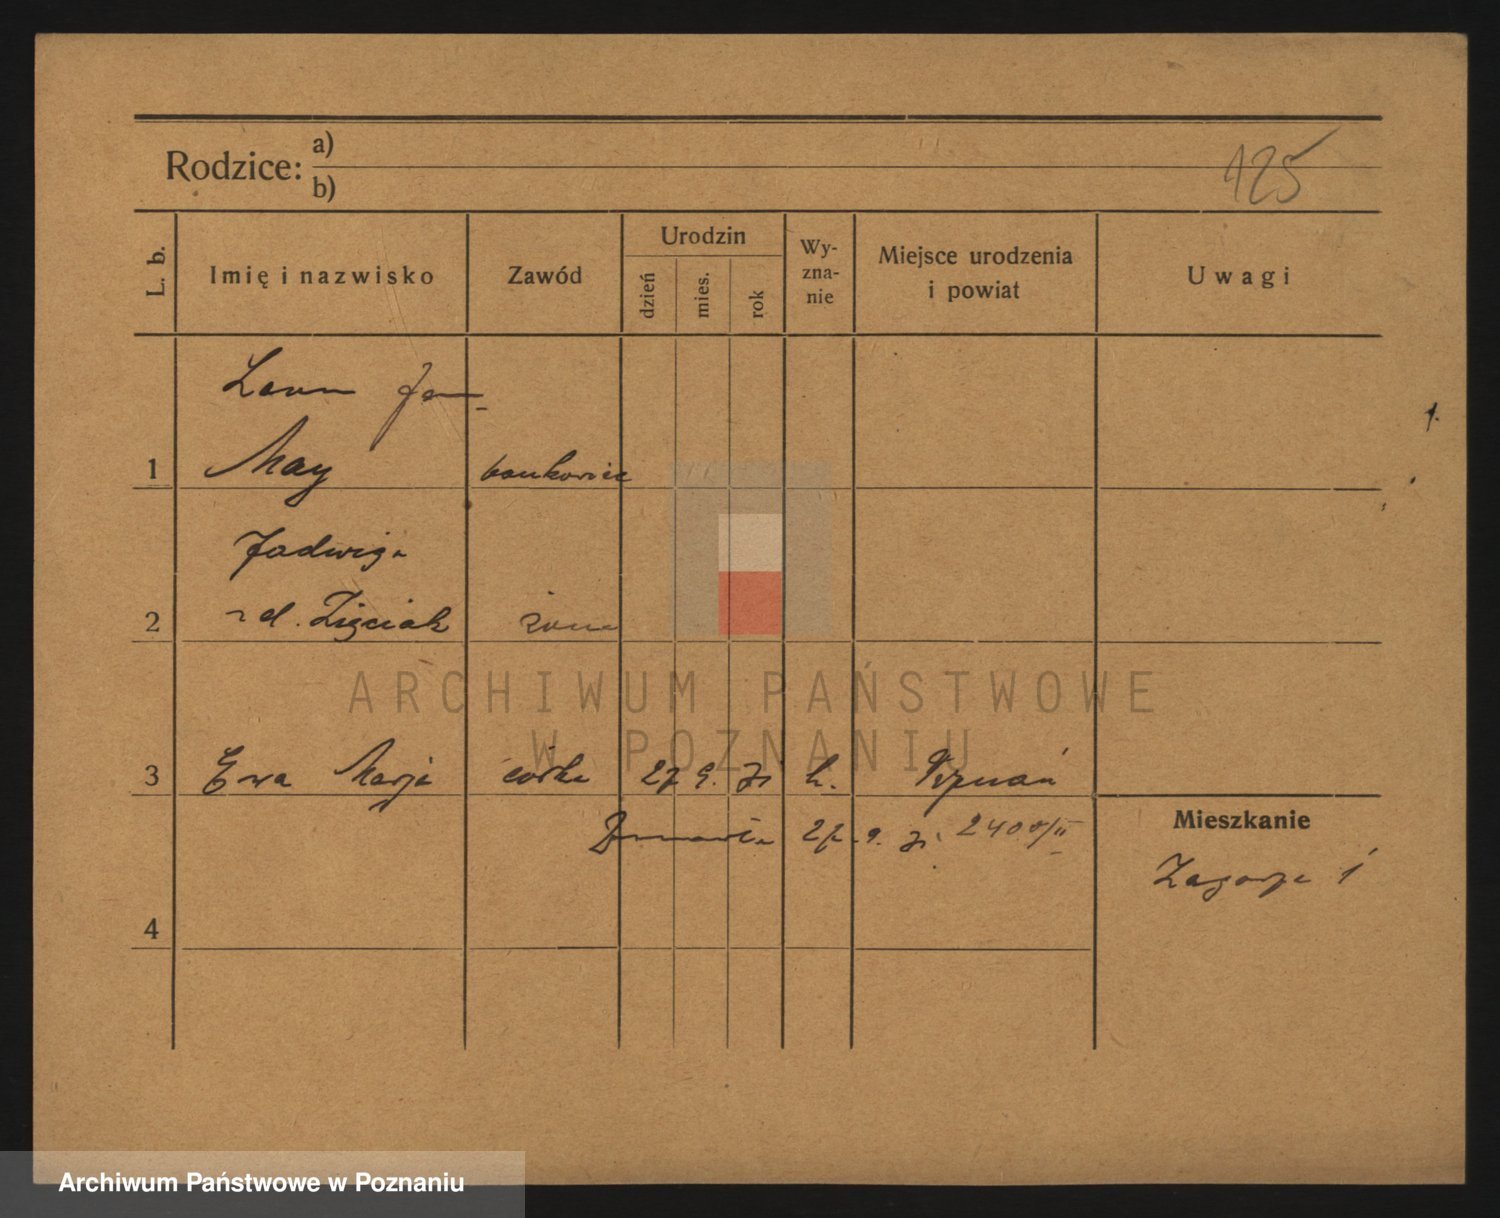 Rodzice: a)
b)
125
L. b.
Imię i nazwisko
Zawód
Urodzin
dzień
mies.
rok
Wy-
zna-
nie
Miejsce urodzenia
i powiat
Uwagi
1
May
bankowiec
Jadwiga
2 zd. Zięciak żona
3 Ewa Marja córka 27 9. 31 k. Poznań
27. 9. 31
Mieszkanie
Zagórze 1
4
ARCHIWUM PAŃSTWOWE
W POZNANIU
Archiwum Państwowe w Poznaniu